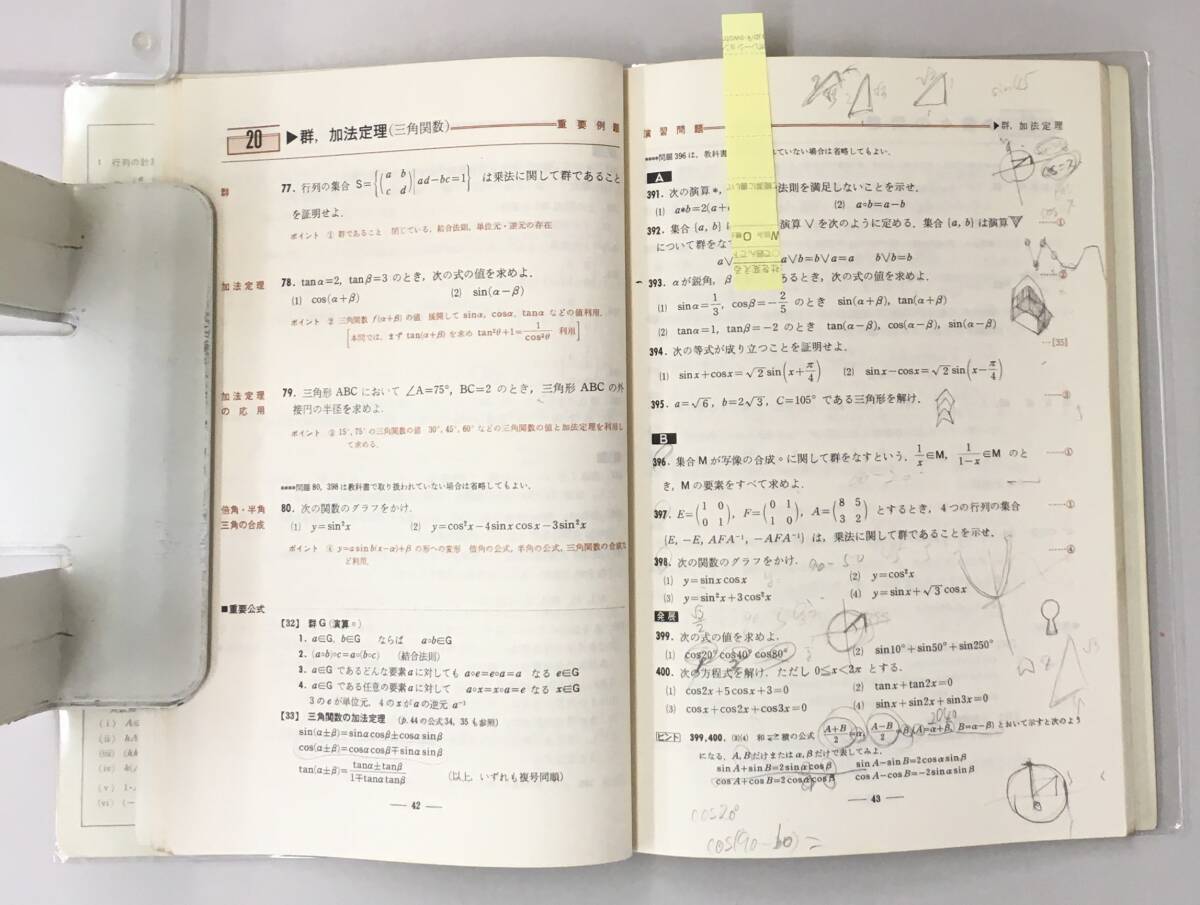 1 行列の計
20 ▶群，加法定理(三角関数) 重要例題
群
77. 行列の集合 S={(a b c d)|ad−bc=1} は乗法に関して群であること
を証明せよ．
ポイント ① 群であること 閉じている，結合法則，単位元・逆元の存在
加法定理
78. tanα=2, tanβ=3 のとき，次の式の値を求めよ．
(1) cos(α+β) (2) sin(α−β)
ポイント ② 三角関数 f(α+β) の値 展開して sinα, cosα, tanα などの値利用．
[本問では，まず tan(α+β) を求め tan²θ+1=1/cos²θ 利用]
加法定理
の応用
79. 三角形 ABC において ∠A=75°, BC=2 のとき，三角形 ABC の外
接円の半径を求めよ．
ポイント ③ 15°, 75° の三角関数の値 30°, 45°, 60° などの三角関数の値と加法定理を利用し
て求める．
****問題 80, 398 は教科書で取り扱われていない場合は省略してもよい．
倍角・半角
三角の合成
80. 次の関数のグラフをかけ．
(1) y=sin²x (2) y=cos²x−4sinx cosx−3sin²x
ポイント ④ y=a sin b(x−α)+β の形への変形 倍角の公式，半角の公式，三角関数の合成な
ど利用．
■重要公式
[32] 群 G (演算∘)
1. a∈G, b∈G ならば a∘b∈G
2. (a∘b)∘c=a∘(b∘c) (結合法則)
3. a∈G であるどんな要素 a に対しても a∘e=e∘a=a なる e∈G
4. a∈G である任意の要素 a に対して a∘x=x∘a=e なる x∈G
3 の e が単位元，4 の x が a の逆元 a⁻¹
[33] 三角関数の加法定理 (p.44 の公式 34, 35 も参照)
sin(α±β)=sinαcosβ±cosαsinβ
cos(α±β)=cosαcosβ∓sinαsinβ
tan(α±β)=tanα±tanβ/1∓tanαtanβ (以上，いずれも複号同順)
— 42 —
sin45
演習問題 ▶群，加法定理
****問題 396 は，教科書 れていない場合は省略してもよい．
A
391. 次の演算 *, 法則を満足しないことを示せ．
(1) a*b=2(a+ (2) a∘b=a−b
392. 集合 {a, b} に 演算 ∨ を次のように定める．集合 {a, b} は演算 ∨
について群をな …①
a∨ a∨b=b∨a=a b∨b=b
…②
393. α が鋭角，β あるとき，次の式の値を求めよ．
(1) sinα=1/3, cosβ=−2/5 のとき sin(α+β), tan(α+β)
(2) tanα=1, tanβ=−2 のとき tan(α−β), cos(α−β), sin(α−β)
394. 次の等式が成り立つことを証明せよ． …[35]
(1) sinx+cosx=√2 sin(x+π/4) (2) sinx−cosx=√2 sin(x−π/4)
395. a=√6, b=2√3, C=105° である三角形を解け． …③
B
396. 集合 M が写像の合成∘に関して群をなすという．1/x∈M, 1/1−x∈M のと …①
き，M の要素をすべて求めよ．
397. E=(1 0 0 1), F=(0 1 1 0), A=(8 5 3 2) とするとき，4 つの行列の集合 …①
{E, −E, AFA⁻¹, −AFA⁻¹} は，乗法に関して群であることを示せ．
398. 次の関数のグラフをかけ． …④
(1) y=sinx cosx (2) y=cos²x
(3) y=sin²x+3cos²x (4) y=sinx+√3 cosx
発展
399. 次の式の値を求めよ．
(1) cos20° cos40° cos80° (2) sin10°+sin50°+sin250°
400. 次の方程式を解け．ただし 0≦x<2π とする．
(1) cos2x+5cosx+3=0 (2) tanx+tan2x=0
(3) cosx+cos2x+cos3x=0 (4) sinx+sin2x+sin3x=0
ヒント 399, 400. (3)(4) 和 ⇄ 積の公式 A+B/2=α, A−B/2=β, (A=α+β, B=α−β) とおいて示すと次のよう
になる．A, B だけまたは α, β だけで表してみよ．
sinA+sinB=2sinαcosβ sinA−sinB=2cosαsinβ
cosA+cosB=2cosαcosβ cosA−cosB=−2sinαsinβ
— 43 —
cos20°
cos(90−60)=